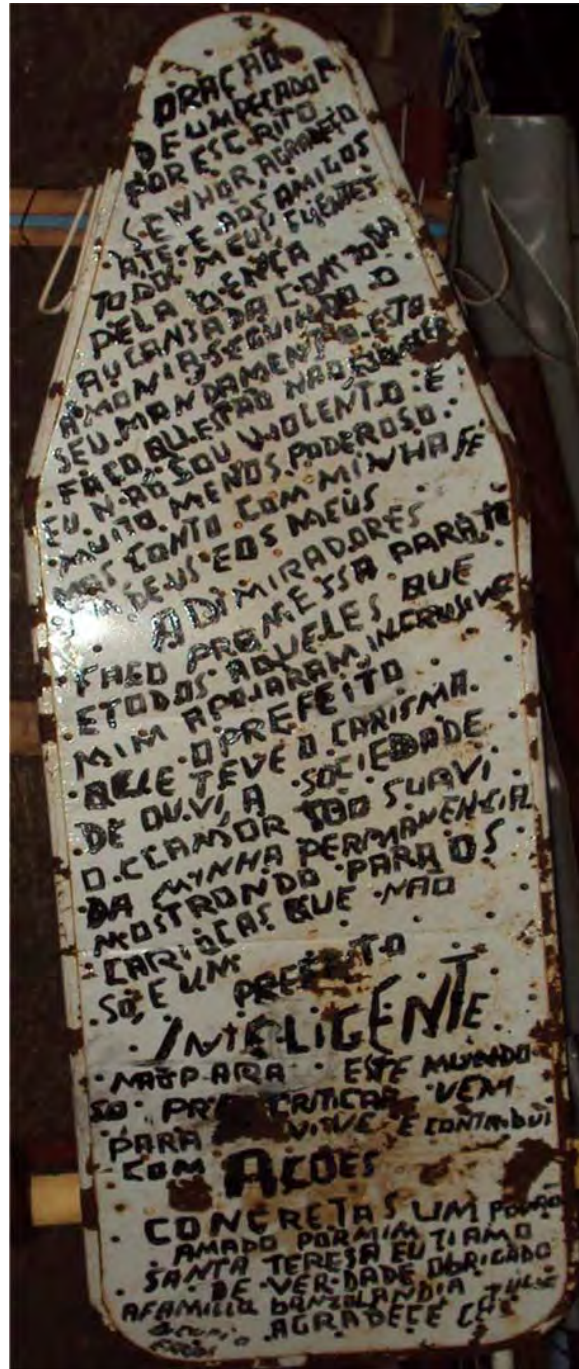 ORAÇÃO
DE UM PECADOR
POR ESCRITO
SENHOR, AGRADEÇO
ATE, E AOS AMIGOS
TODOS MEUS CLIENTES
PELA BENÇA
AUCANSADA COM TODA
AMONIA SEGUINDO O
SEU MANDAMENTO ESTO
FAÇO QUESTÃO NÃO ESQUECER
EU NÃO SOU VIOLENTO E
MUITO MENOS PODEROSO.
MAS CONTO COM MINHA FÉ
DEUS E OS MEUS
ADIMIRADORES
FAÇO PROMESSA PARA TE
E TODOS AQUELES QUE
MIM APOJARAM INCRUSIVE
O PREFEITO
QUE TEVE O CARISMA
DE OUVI, A SOCIEDADE
O CLANSOR TÃO SUAVI
DA MINHA PERMANENCIA
MOSTRONDO PARA OS
CARIOCAS QUE NÃO
SO, E UM PREFEITO
INTELIGENTE
PARA ESTE MUNDO
SO PRA CRITICAR VEM
PARA VIVE E CONTRIBUI
COM AÇOES
CONCRETAS UM POUCO
AMADO POR MIM
SANTA TERESA EU TI AMO
DE VERDADE OBRIGADO
A FAMILIA
AGRADECE